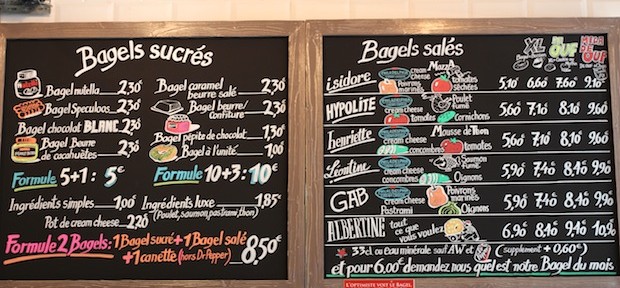 Bagels sucrés
Bagel nutella 2,30
Bagel Speculoos 2,30
Bagel chocolat BLANC 2,30
Bagel Beurre de cacahuètes 2,30
Bagel caramel
beurre salé 2,30
Bagel beurre/
confiture 2,30
Bagel pépite de chocolat 1,30
Bagel à l'unité 1,00
Formule 5+1: 5€
Formule 10+3: 10€
Ingrédients simples 1,00
Pot de cream cheese 2,20
Ingrédients luxe 1,85€
(Poulet, saumon, pastrami, thon)
Formule 2 Bagels: 1 Bagel sucré + 1 Bagel salé
+ 1 canette (hors Dr Pepper) 8,50€
Bagels salés
XL
MEGA
OUF
isidore cream cheese Mozza
Poivrons marinés tomates séchées 5,10€ 6,60€ 7,60€ 9,10€
HYPOLITE cream cheese Poulet fumé
tomates Cornichons 5,60€ 7,10€ 8,10€ 9,60€
henriette cream cheese Mousse de Thon
concombres tomates 5,60€ 7,10€ 8,10€ 9,60€
Léontine cream cheese Saumon fumé
concombres Oignons 5,90€ 7,40€ 8,40€ 9,90€
GAB cream cheese Poivrons marinés
Pastrami Oignons 5,90€ 7,40€ 8,40€ 9,90€
ALBERTINE tout ce que vous voulez 6,90€ 8,40€ 9,40€ 10,90€
33cl ou eau minérale sauf AW et (supplement + 0,60€)
et pour 6,00€ demandez nous quel est notre Bagel du mois
L'OPTIMISTE VOIT LE BAGEL